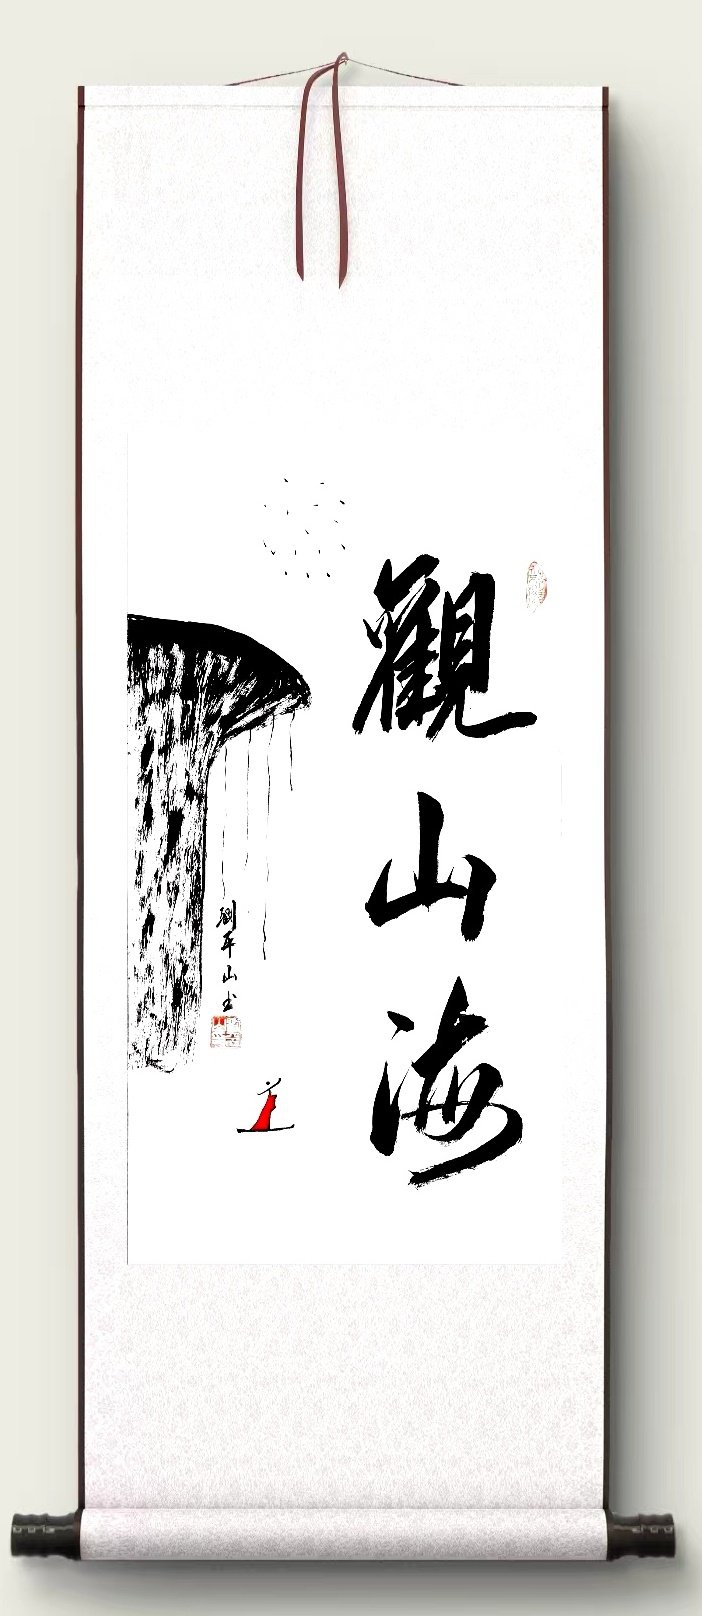 觀山海
劉平山书